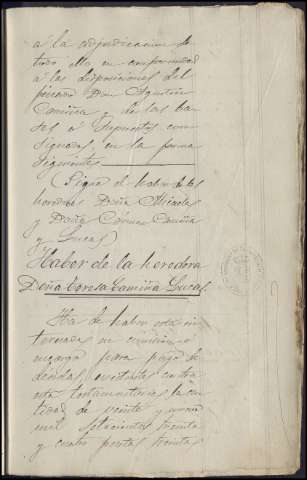 á la adjudicacion de
todo ello en conformidad
á las disposiciones del
finado Don Agustin
Camiña y de las ba-
ses ó supuestos con-
signados, en la forma
siguiente
Sigue el haber de las
herederas Doña Micaela
y Doña Cármen Camiña
y Lucas
Haber de la heredera
Doña Teresa Camiña Lucas
Ha de haber esta in-
teresada en comision ó
encargo para pago de
deudas, existentes contra
esta testamentaria la can-
tidad de veinte y nueve
mil setecientas treinta
y cuatro pesetas treinta